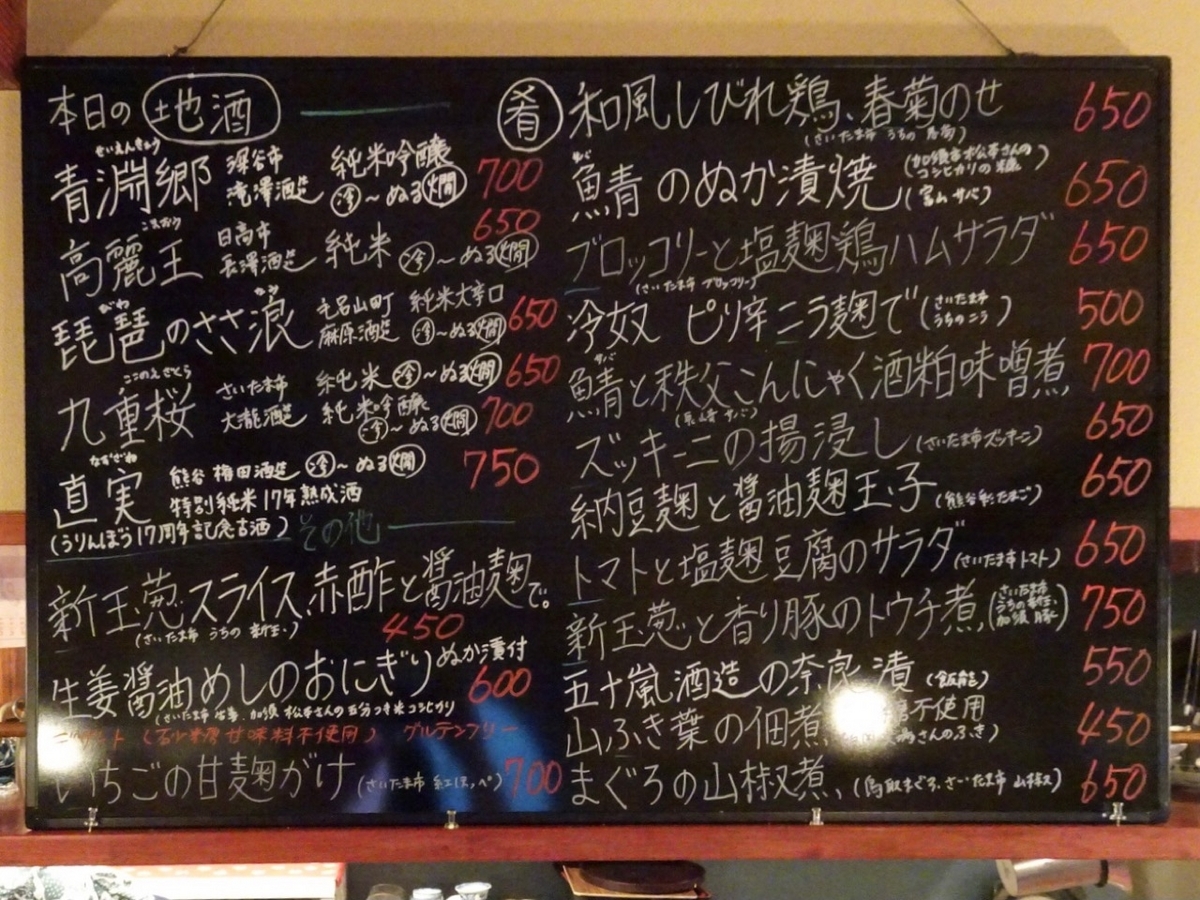 本日の 地酒
せいえんきょう
青淵郷 深谷市 滝澤酒造 純米吟醸 冷〜ぬる燗 700
こまおう
高麗王 日高市 長澤酒造 純米 冷〜ぬる燗 650
びわ なみ
琵琶のささ浪 毛呂山町 麻原酒造 純米大辛口 冷〜ぬる燗 650
ここのえさくら
九重桜 さいたま市 大瀧酒造 純米 冷〜ぬる燗 650
純米吟醸 冷〜ぬる燗 700
なおざね
直実 熊谷 権田酒造 冷〜ぬる燗 750
特別純米17年熟成酒
(うりんぼう17周年記念古酒)
その他
新玉葱スライス、赤酢と醤油麹で。
(さいたま市 うちの 新玉) 450
生姜醤油めしのおにぎり ぬか漬付 600
(さいたま市 生姜、加須 松本さんの五分つき米コシヒカリ
(砂糖甘味料不使用) グルテンフリー
いちごの甘麹がけ (さいたま市 紅ほっぺ) 700
肴 和風しびれ鶏、春菊のせ 650
(さいたま市 うちの 春菊)
サバ
鯖のぬか漬焼 (加須市松本さんのコシヒカリの糠) (富山 サバ) 650
ブロッコリーと塩麹鶏ハムサラダ 650
(さいたま市 ブロッコリー)
冷奴 ピリ辛ニラ麹で (さいたま市 うちのニラ) 500
サバ
鯖と秩父こんにゃく酒粕味噌煮 700
ズッキーニの揚浸し (さいたま市ズッキーニ) 650
納豆麹と醤油麹玉子 (熊谷 たまご) 650
トマトと塩麹豆腐のサラダ (さいたま市 トマト) 650
新玉葱と香り豚のトウチ煮、(さいたま市 うちの新玉 加須 豚) 750
五十嵐酒造の奈良漬 (飯能) 550
山ふき葉の佃煮 不使用 さんのふき) 450
まぐろの山椒煮、(鳥取まぐろ、さいたま市 山椒) 650